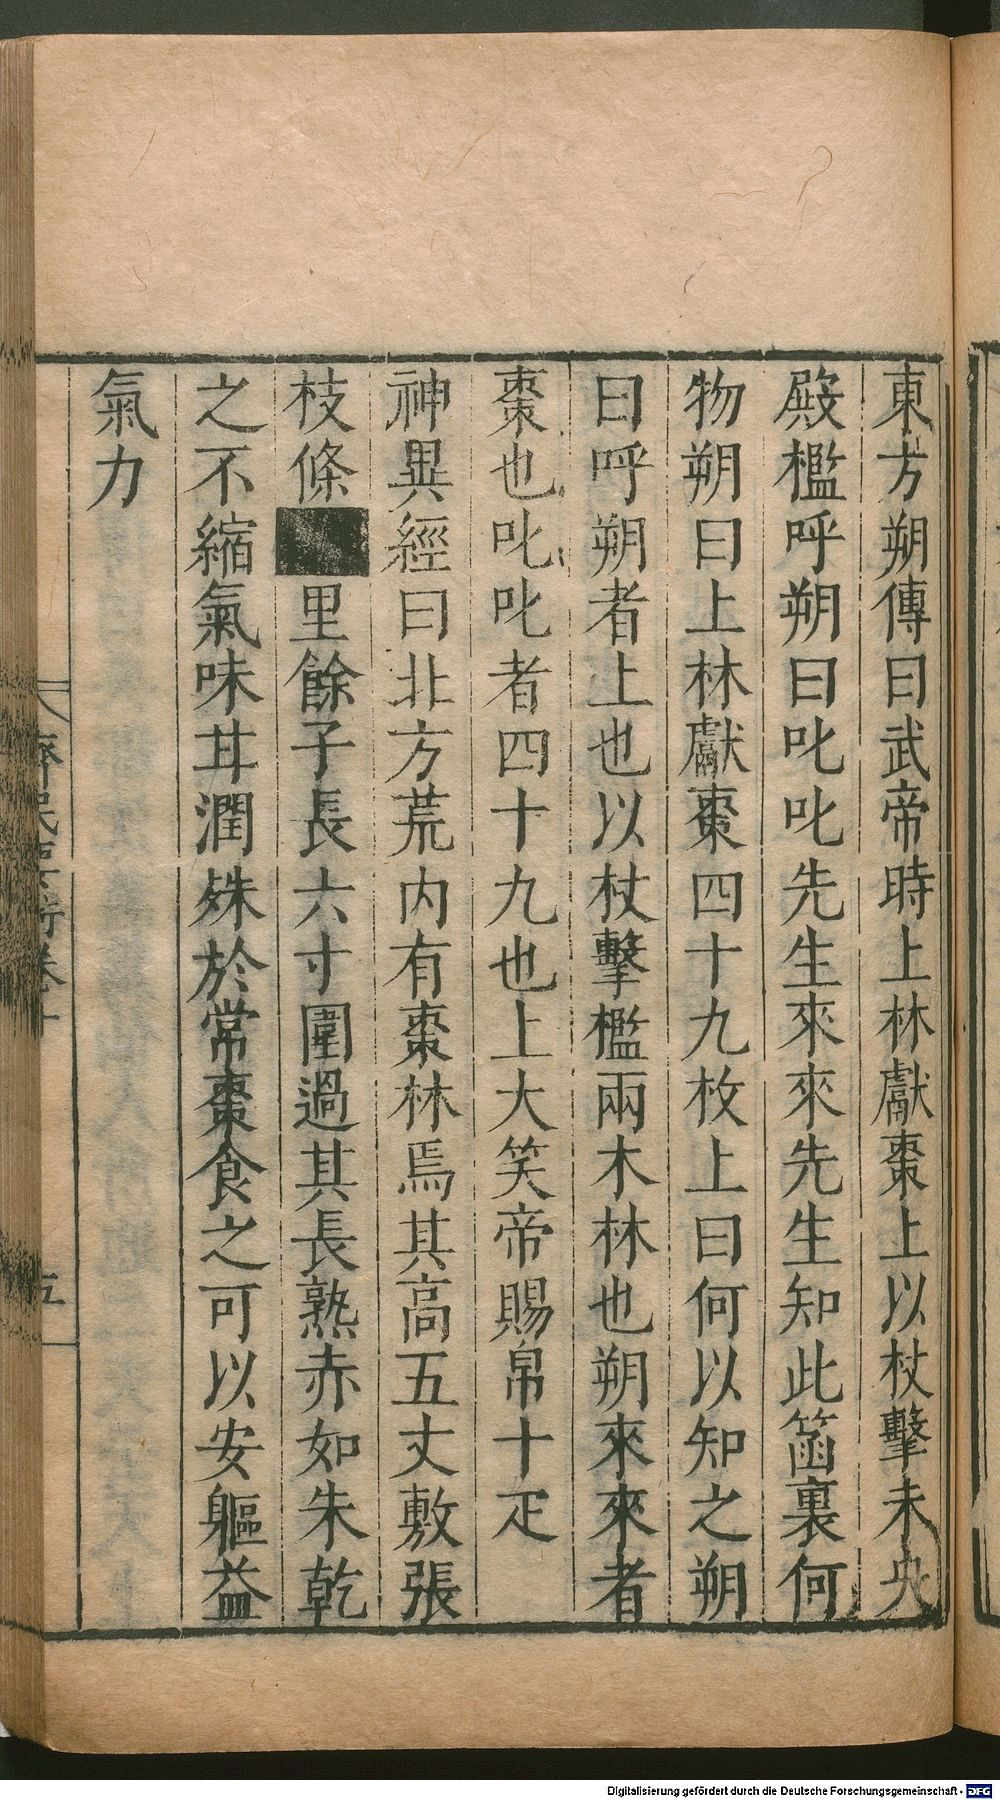 東方朔傳曰武帝時上林獻棗上以杖擊未央
殿檻呼朔曰叱叱先生來來先生知此篋裏何
物朔曰上林獻棗四十九枚上曰何以知之朔
曰呼朔者上也以杖擊檻兩木林也朔來來者
棗也叱叱者四十九也上大笑帝賜帛十疋
神異經曰北方荒内有棗林焉其高五丈敷張
枝條里餘子長六寸圍過其長熟赤如朱乾
之不縮氣味甘潤殊於常棗食之可以安軀益
氣力
齊民要術卷十
五
Digitalisierung gefördert durch die Deutsche Forschungsgemeinschaft - DFG